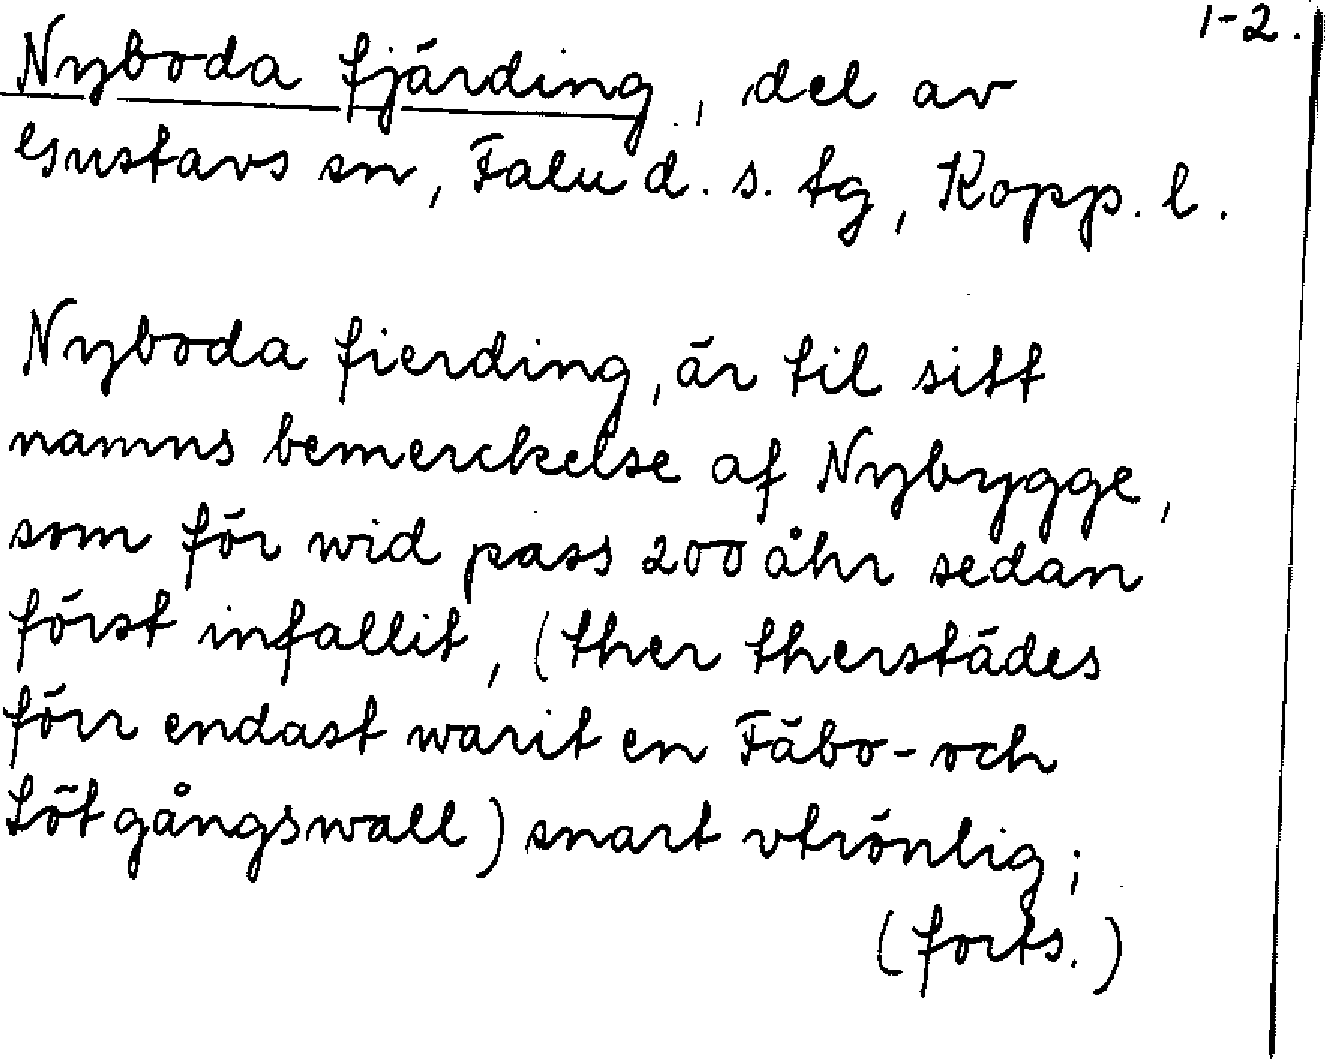 1-2.
Nyboda fjärding, del av
Gustavs sn, Falu d. s. tg, Kopp. l.
Nyboda fierding, är til sitt
namns bemerckelse af Nybygge,
som för wid pass 200 åhr sedan
först infallit, (ther therstädes
förr endast warit en Fäbo- och
Lötgångswall) snart vtrönlig;
(forts.)